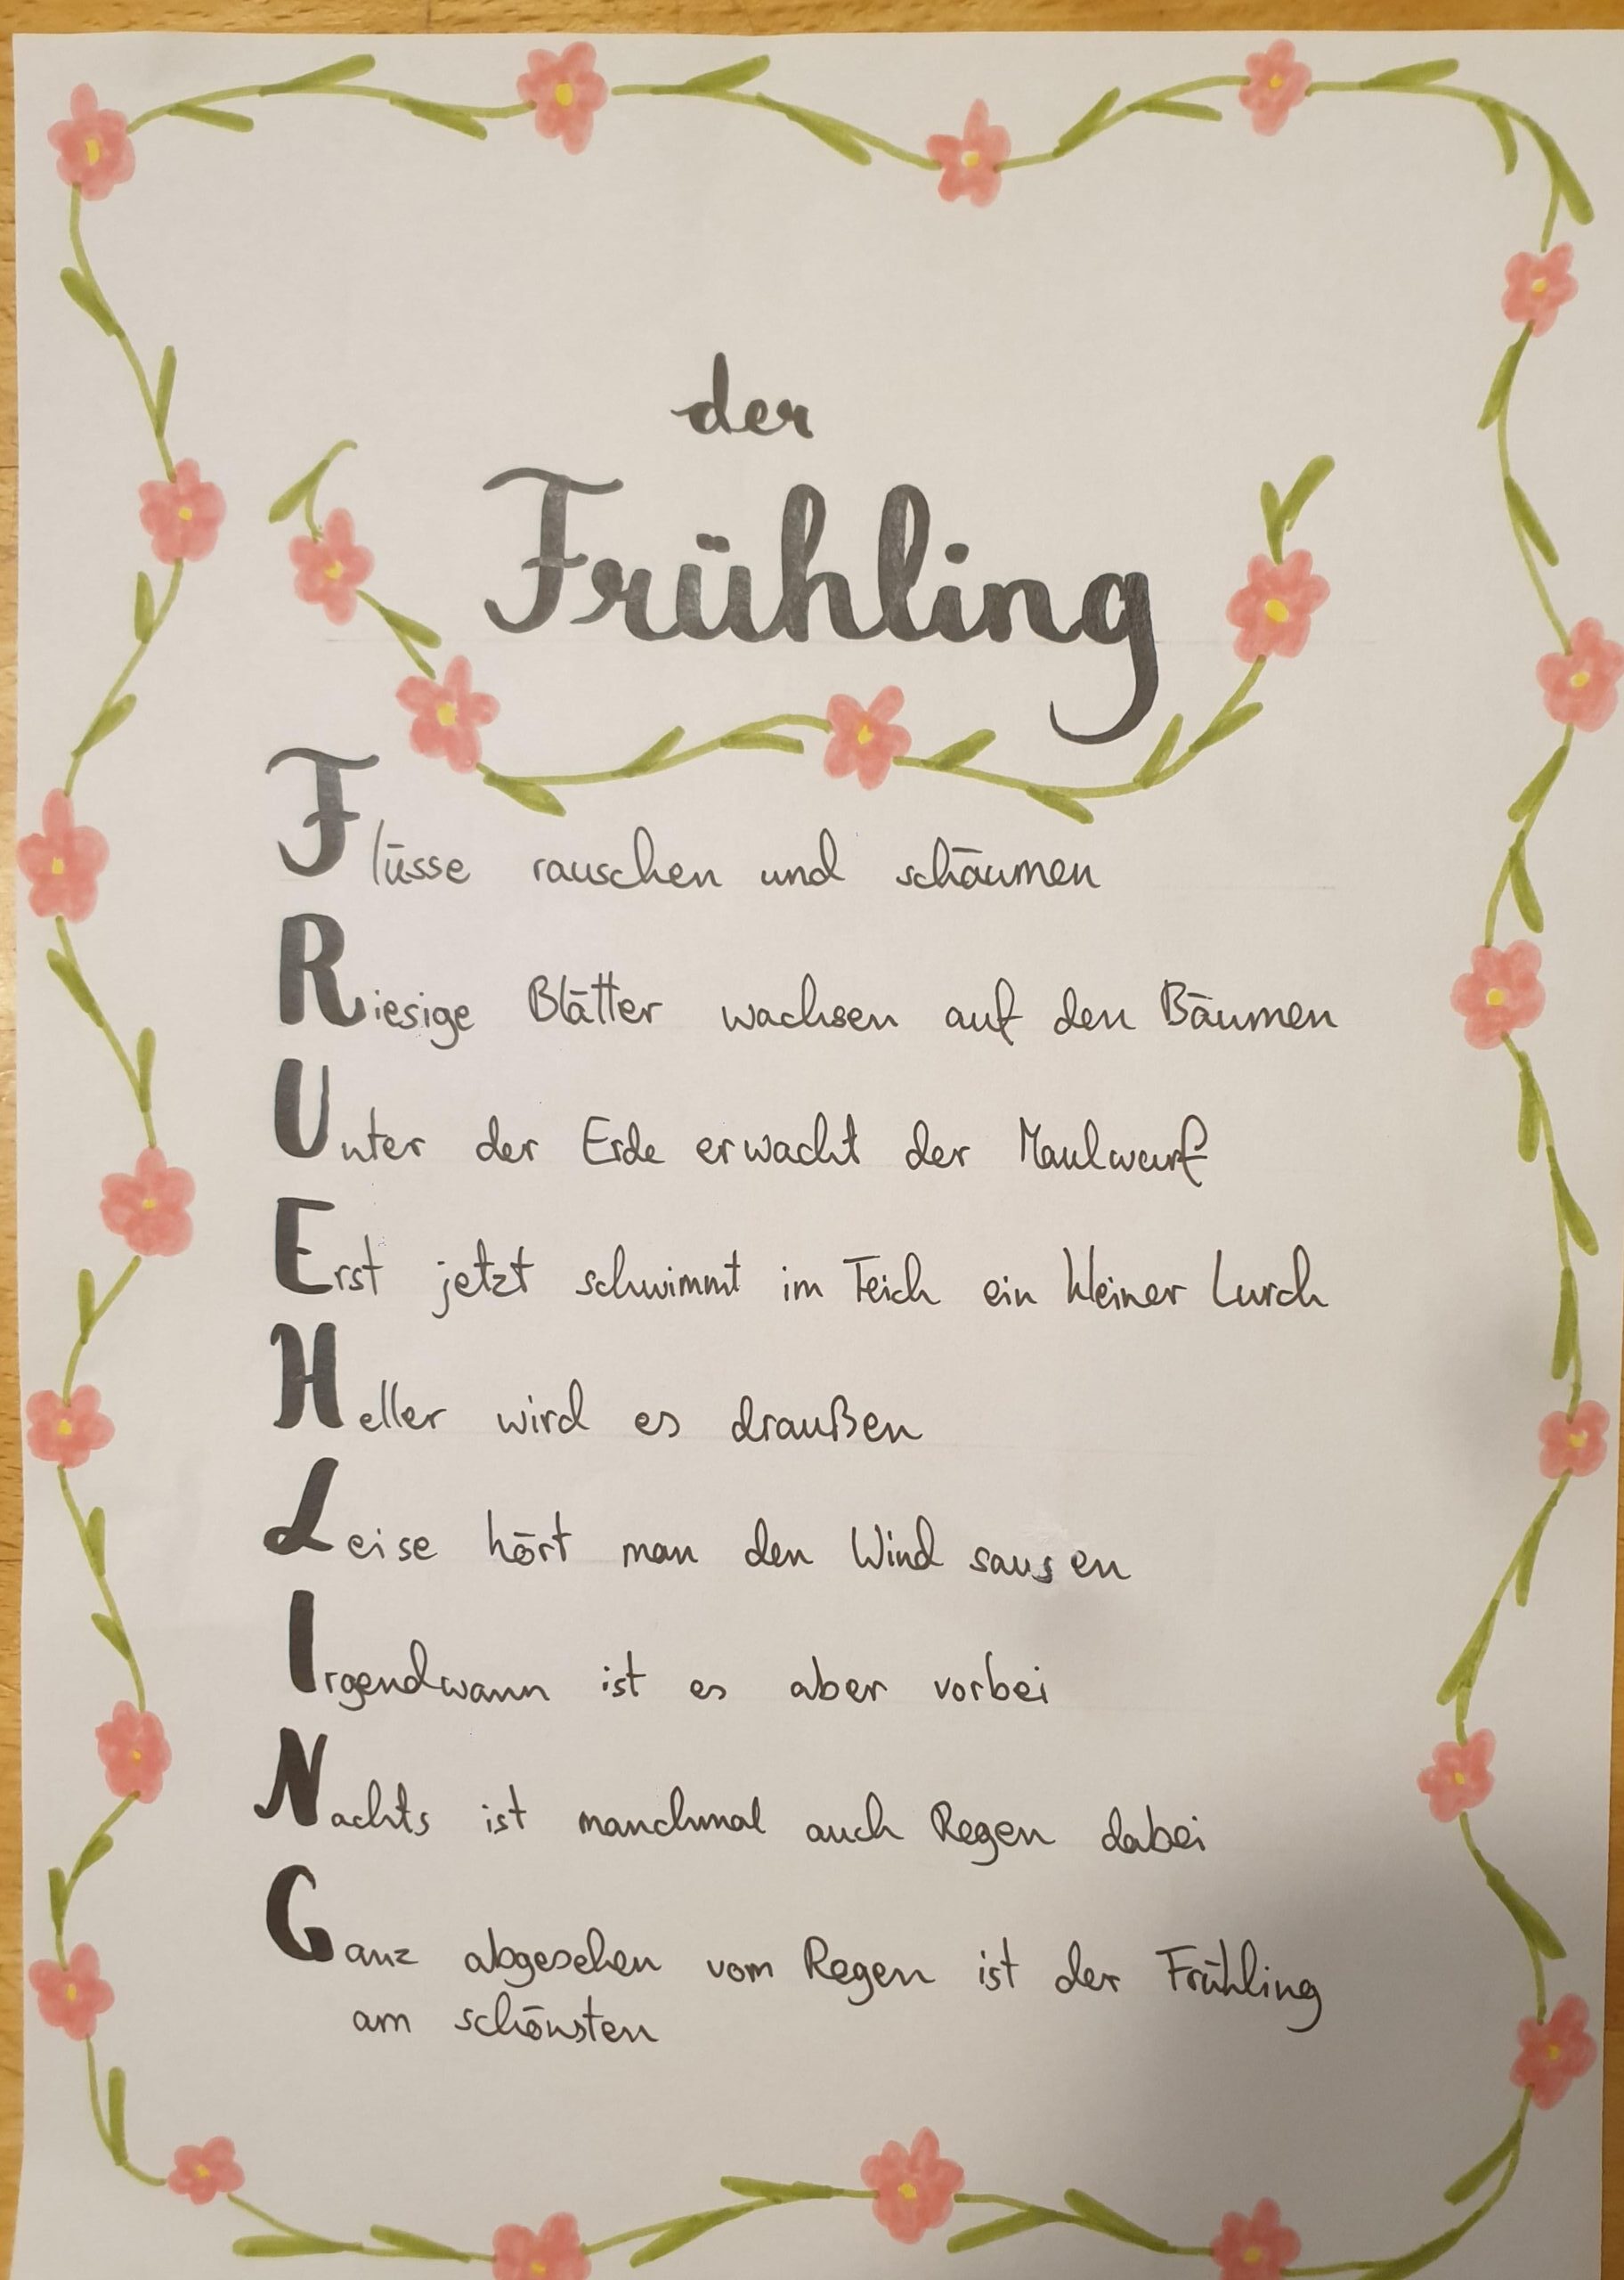 der
Frühling
Flüsse rauschen und schäumen
Riesige Blätter wachsen auf den Bäumen
Unter der Erde erwacht der Maulwurf
Erst jetzt schwimmt im Teich ein kleiner Lurch
Heller wird es draußen
Leise hört man den Wind sausen
Irgendwann ist es aber vorbei
Nachts ist manchmal auch Regen dabei
Ganz abgesehen vom Regen ist der Frühling
am schönsten